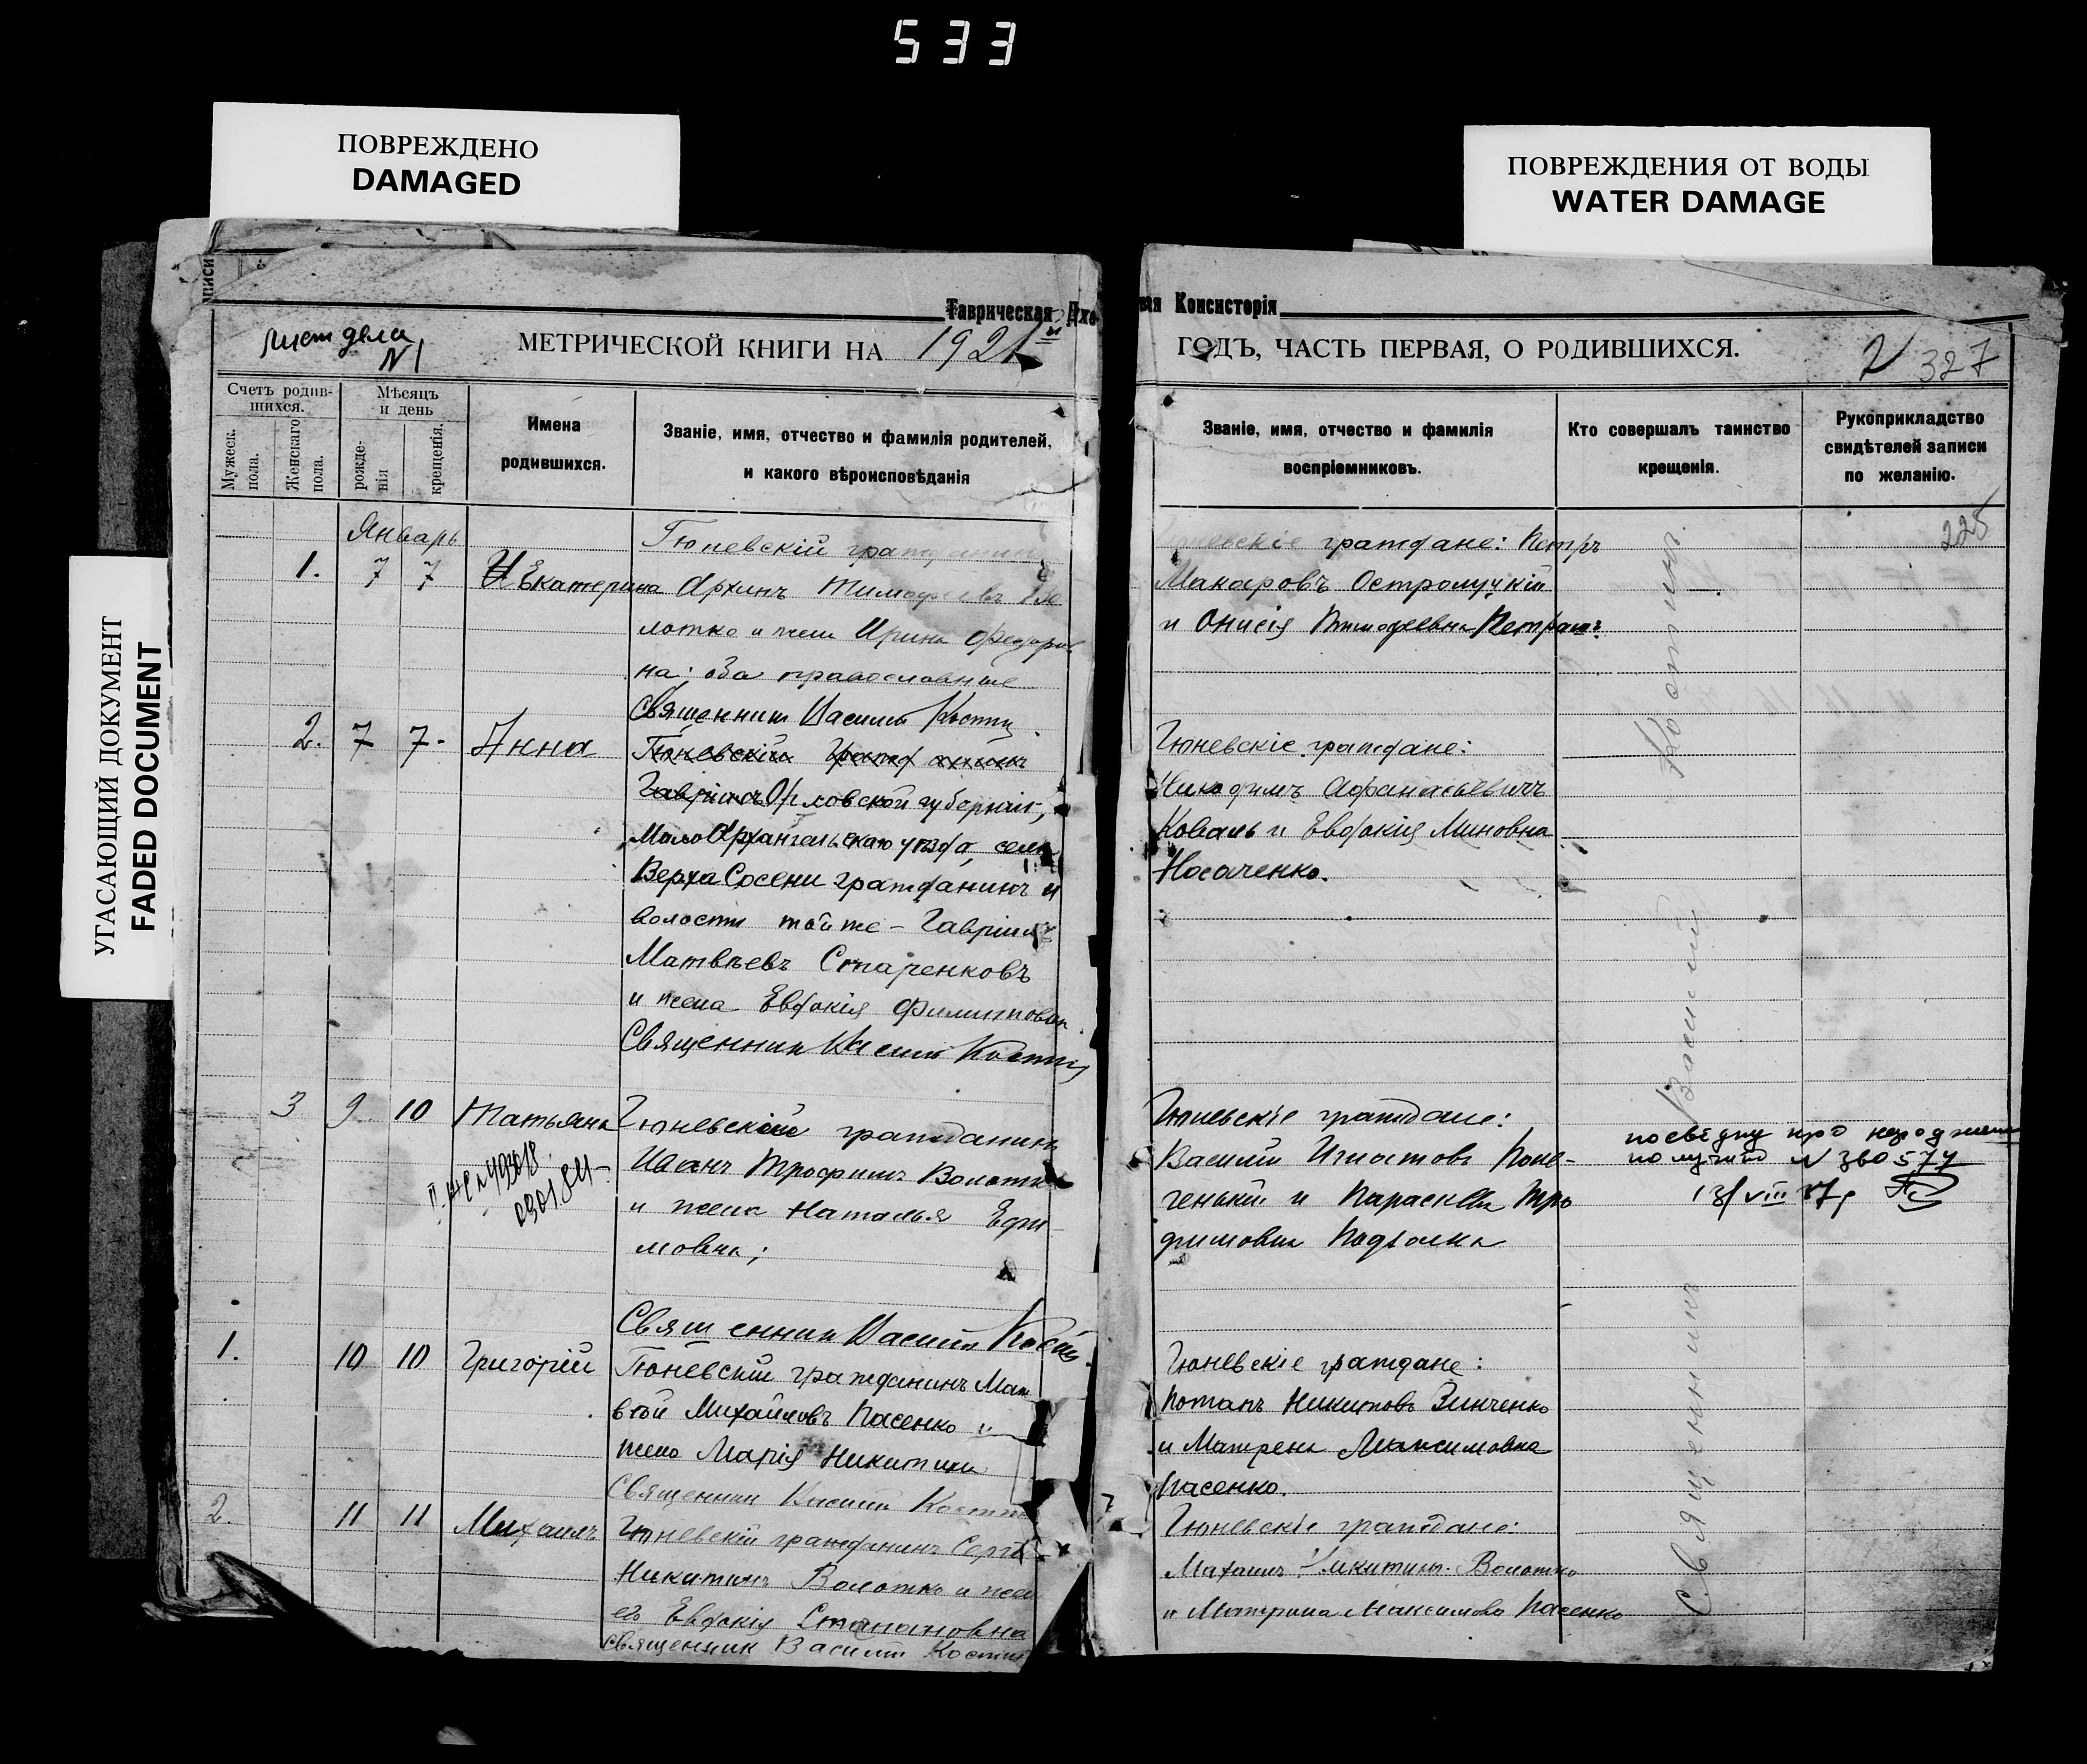 533
ПОВРЕЖДЕНО
DAMAGED
ПОВРЕЖДЕНИЯ ОТ ВОДЫ
WATER DAMAGE
УГАСАЮЩИЙ ДОКУМЕНТ
FADED DOCUMENT
Таврическая Духо
вія Консисторія
лист дела
N1
МЕТРИЧЕСКОЙ КНИГИ НА 1921й
ГОДЪ, ЧАСТЬ ПЕРВАЯ, О РОДИВШИХСЯ.
2 327
Счетъ родив-
шихся.
Мужеск.
пола.
Женскаго
пола.
Мѣсяцъ
и день
рожде-
нія
крещенія.
Имена
родившихся.
Званіе, имя, отчество и фамилія родителей,
и какого вѣроисповѣданія
Званіе, имя, отчество и фамилія
воспріемниковъ.
Кто совершалъ таинство
крещенія.
Рукоприкладство
свидѣтелей записи
по желанію.
225
Январь
1. 7 7 Екатерина
Гюневскій гражданинъ
Архипъ Тимофеевъ
лотко и жена Ирина Федоров
на: оба православные
Священник Василий Костин
граждане: Петръ
Макаровъ Остролуцкій
и Онисія Тимофеевна Петраш
2. 7 7. Анна
Гюневскій гражданинъ
Гавріилъ Орловской губерніи,
МалоАрхангельскаго уѣзда, села
Верха Сосени гражданинъ и
волости той же - Гавріилъ
Матвѣевъ Старенковъ
и жена Евдокія Филиповна
Священник Василий Костин
Гюневскіе граждане:
Никодимъ Афанасьевичъ
Коваль и Евдокія Миновна
Носаченко.
3 9 10 Татьяна
Гюневскій гражданинъ
Иванъ Трофимъ Волотко
и жена Наталья Ефи
мовна;
Священник Василий Костин
Гюневскіе граждане:
Василій Игнатовъ
и Параскева Тро
фимовна
получила N 360577
1. 10 10 Григорій
Гюневскій гражданинъ Мат
вѣй Михайловъ Пасенко и
жена Марія Никитина
Священник Василий Костин
Гюневскіе граждане:
Потапъ Никитовъ Зинченко
и Матрена Максимовна
Пасенко.
2. 11 11 Михаилъ
Гюневскій гражданинъ Серг
Никитинъ Волотко и жена
его Евдокія Стапановна
Священник Василий Костин
Гюневскіе граждане:
Михаилъ Никитинъ Волотко
и Матрина Максимова Пасенко
Священникъ Василий Костинъ